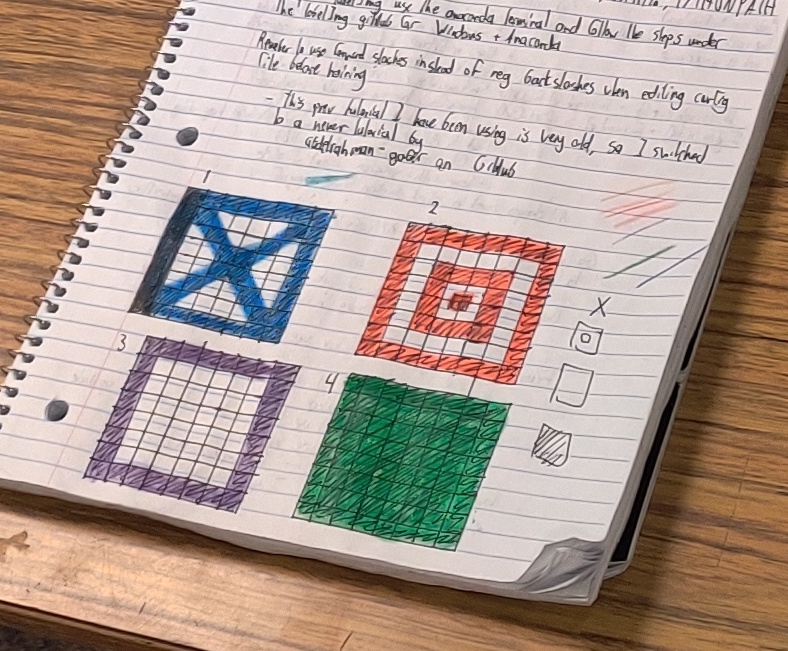 use the anaconda terminal and follow the steps under
The labelImg github for Windows + Anaconda
Remeber to use forward slashes instead of reg backslashes when editing config
file before training
- This prev tutorial I have been using is very old, so I switched
to a newer tutorial by
on GitHub
1
2
3
4
X